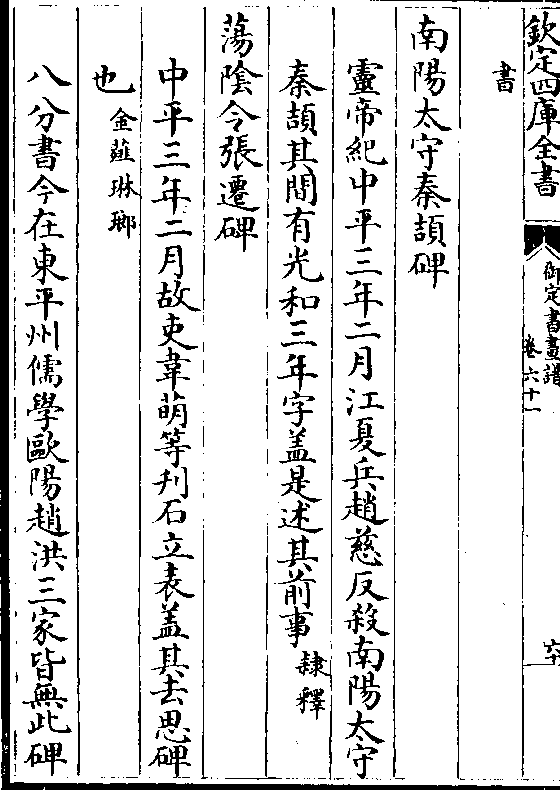 欽定四庫全書
御定書畫譜
卷六十一
六十
書
南陽太守秦頡碑
靈帝紀中平三年二月江夏兵趙慈反殺南陽太守
秦頡其間有光和三年字盖是述其前事隸釋
蕩陰令張遷碑
中平三年二月故吏韋萌等刋石立表盖其去思碑
也金薤琳瑯
八分書今在東平州儒學歐陽趙洪三家皆無此碑